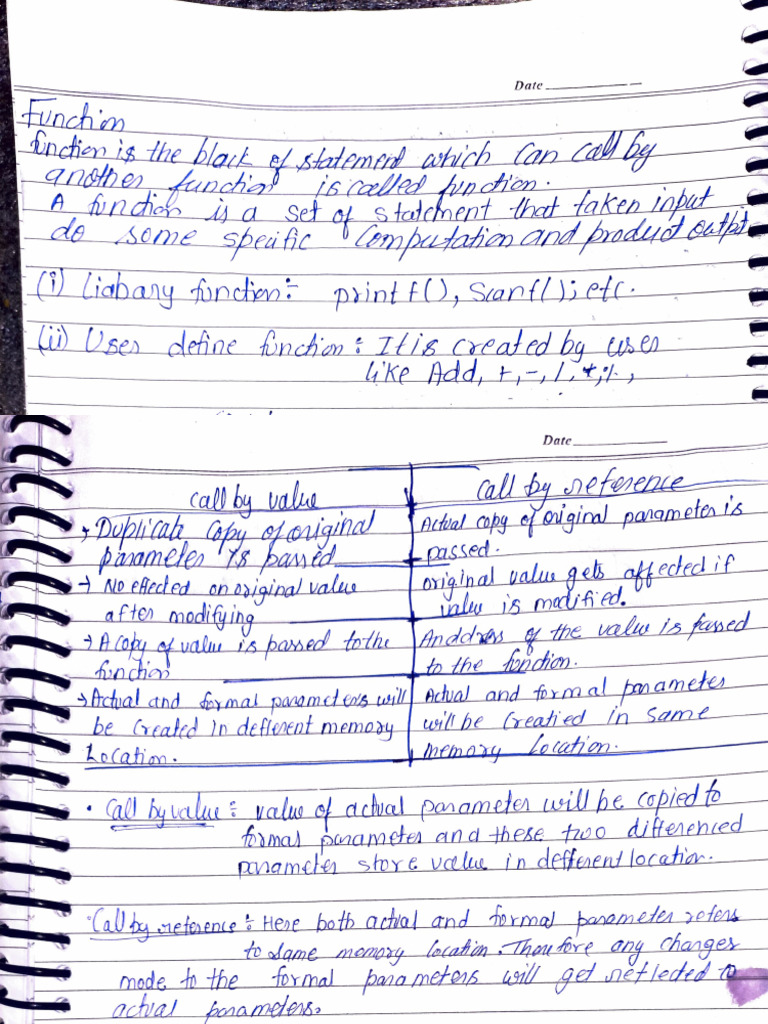 Date
Function
function is the block of statement which can call by
another function is called function.
A function is a set of statement that taken input
do some specific Computation and product output
(i) Liabary function:- printf(), Scanf(); etc.
(ii) Uses define function: It is created by uses
like Add, +, -, /, *, %,
Date
call by value
Call by reference
→ Duplicate copy of original
parameter is passed
Actual copy of original parameter is
passed.
→ No effected on original value
after modifying
original value gets affected if
value is modified.
→ A copy of value is passed to the
function
Anddress of the value is passed
to the function.
→ Actual and formal parameters will
be created in defferent memory
Location.
Actual and formal parameter
will be Creatied in same
memory location.
• Call by value:- value of actual parameter will be copied to
formal parameter and these two differenced
parameter store value in defferent location.
Call by reference:- Here both actual and formal parameter refers
to same memory location. Therefore any changes
made to the formal parameters will get reflected to
actual parameters.